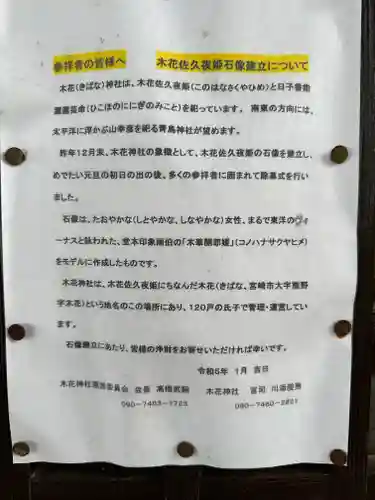 参拝者の皆様へ 木花佐久夜姫石像建立について
木花(きばな)神社は、木花佐久夜姫(このはなさくやひめ)と日子番能
邇邇芸命(ひこほのににぎのみこと)を祀っています。 南東の方向には、
太平洋に浮かぶ山幸彦を祀る青島神社が望めます。
昨年12月末、木花神社の象徴として、木花佐久夜姫の石像を建立し、
めでたい元旦の初日の出の後、多くの参拝者に囲まれて除幕式を行い
ました。
石像は、たおやかな(しとやかな、しなやかな)女性、まるで東洋のヴィ
ーナスと謳われた、堂本印象画伯の「木華開耶媛」(コノハナサクヤヒメ)
をモデルに作成したものです。
木花神社は、木花佐久夜姫にちなんだ木花(きばな、宮崎市大字熊野
字木花)という地名のこの場所にあり、120戸の氏子で管理・運営してい
ます。
石像建立にあたり、皆様の浄財をお寄せいただければ幸いです。
1月 吉日
木花神社 委員会 会長 木花神社 宮司